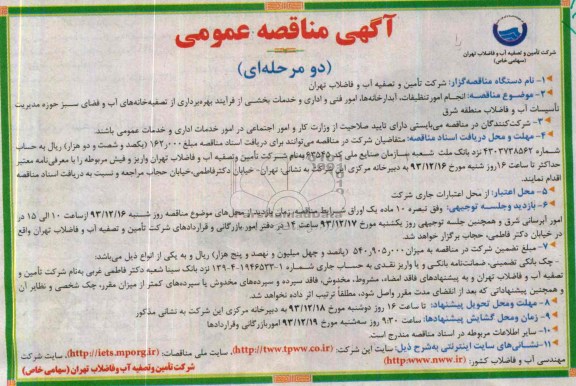 آگهی مناقصه عمومی
(دو مرحله‌ای)
شرکت تأمین و تصفیه آب و فاضلاب تهران
(سهامی خاص)
۱- نام دستگاه مناقصه‌گزار: شرکت تأمین و تصفیه آب و فاضلاب تهران
۲- موضوع مناقصه: انجام امور تنظیفات، آبدارخانه‌ها، امور فنی و اداری و خدمات بخشی از فرآیند بهره‌برداری از تصفیه‌خانه‌های آب و فضای سبز حوزه مدیریت
تأسیسات آب و فاضلاب منطقه شرق
۳- شرکت‌کنندگان در مناقصه می‌بایستی دارای تایید صلاحیت از وزارت کار و امور اجتماعی در امور خدمات اداری و خدمات عمومی باشند.
۴- مهلت و محل دریافت اسناد مناقصه: متقاضیان شرکت در مناقصه می‌توانند برای دریافت اسناد مناقصه مبلغ ۱۶۲٫۰۰۰ (یکصد و شصت و دو هزار) ریال به حساب
شماره ۴۳۰۳۷۳۸۵۶۲ نزد بانک ملت شعبه سازمان صنایع ملی کد ۶۳۵۴۵ به‌نام شرکت تأمین وتصفیه آب و فاضلاب تهران واریز و فیش مربوطه را با معرفی‌نامه معتبر
حداکثر تا ساعت ۱۶ روز شنبه مورخ ۹۳/۱۲/۱۶ به دبیرخانه مرکزی این شرکت به نشانی: تهران- خیابان دکترفاطمی-خیابان حجاب مراجعه و نسبت به دریافت اسناد مناقصه
اقدام نمایند.
۵- محل اعتبار: از محل اعتبارات جاری شرکت
۶- بازدید وجلسه توجیهی: وفق تبصره ۱۰ ماده یک اوراق شرایط مناقصه، زمان بازدید از محل‌های موضوع مناقصه روز شنبه ۹۳/۱۲/۱۶ ازساعت ۱۰ الی ۱۵ در
امور آبرسانی شرق و همچنین جلسه توجیهی روز یکشنبه مورخ ۹۳/۱۲/۱۷ ساعت ۱۴ در دفتر امور بازرگانی و قراردادهای شرکت تأمین و تصفیه آب و فاضلاب تهران واقع
در خیابان دکتر فاطمی، حجاب برگزار خواهد شد.
۷- مبلغ تضمین شرکت در مناقصه به میزان ۵۴۰٫۹۰۵٫۰۰۰ (پانصد و چهل میلیون و نهصد و پنج هزار) ریال و به یکی از انواع ذیل می‌باشد:
- چک بانکی تضمینی، ضمانت‌نامه بانکی و یا واریز نقدی به حساب جاری شماره ۱-۱۹۴۶۵۳۳-۴-۱۳۹ نزد بانک سینا شعبه دکتر فاطمی غربی به‌نام شرکت تأمین و
تصفیه آب و فاضلاب تهران و به پیشنهادهای فاقد امضاء، مشروط، مخدوش، فاقد سپرده و سپرده‌های مخدوش یا سپرده‌های کمتر از میزان مقرر، چک شخصی و نظایر آن
و همچنین پیشنهاداتی که بعد از انقضای مدت مقرر واصل شود، مطلقاً ترتیب اثر داده نخواهد شد.
۸- مهلت ومحل تحویل پیشنهاد: تا ساعت ۱۶ روز دوشنبه مورخ ۹۳/۱۲/۱۸ به دبیرخانه مرکزی این شرکت به نشانی مذکور
۹- زمان ومحل گشایش پیشنهادها: ساعت ۹:۳۰ روز سه‌شنبه مورخ ۹۳/۱۲/۱۹ امور بازرگانی وقراردادها
۱۰- سایر اطلاعات مربوطه در اسناد مناقصه مندرج است.
۱۱- نشانی‌های سایت اینترنتی به‌شرح ذیل: سایت این شرکت: (http://tww.tpww.co.ir)، سایت ملی مناقصات: (http://iets.mporg.ir)، سایت شرکت
مهندسی آب و فاضلاب کشور: (http:www.nww.ir)
شرکت تأمین وتصفیه آب وفاضلاب تهران (سهامی خاص)